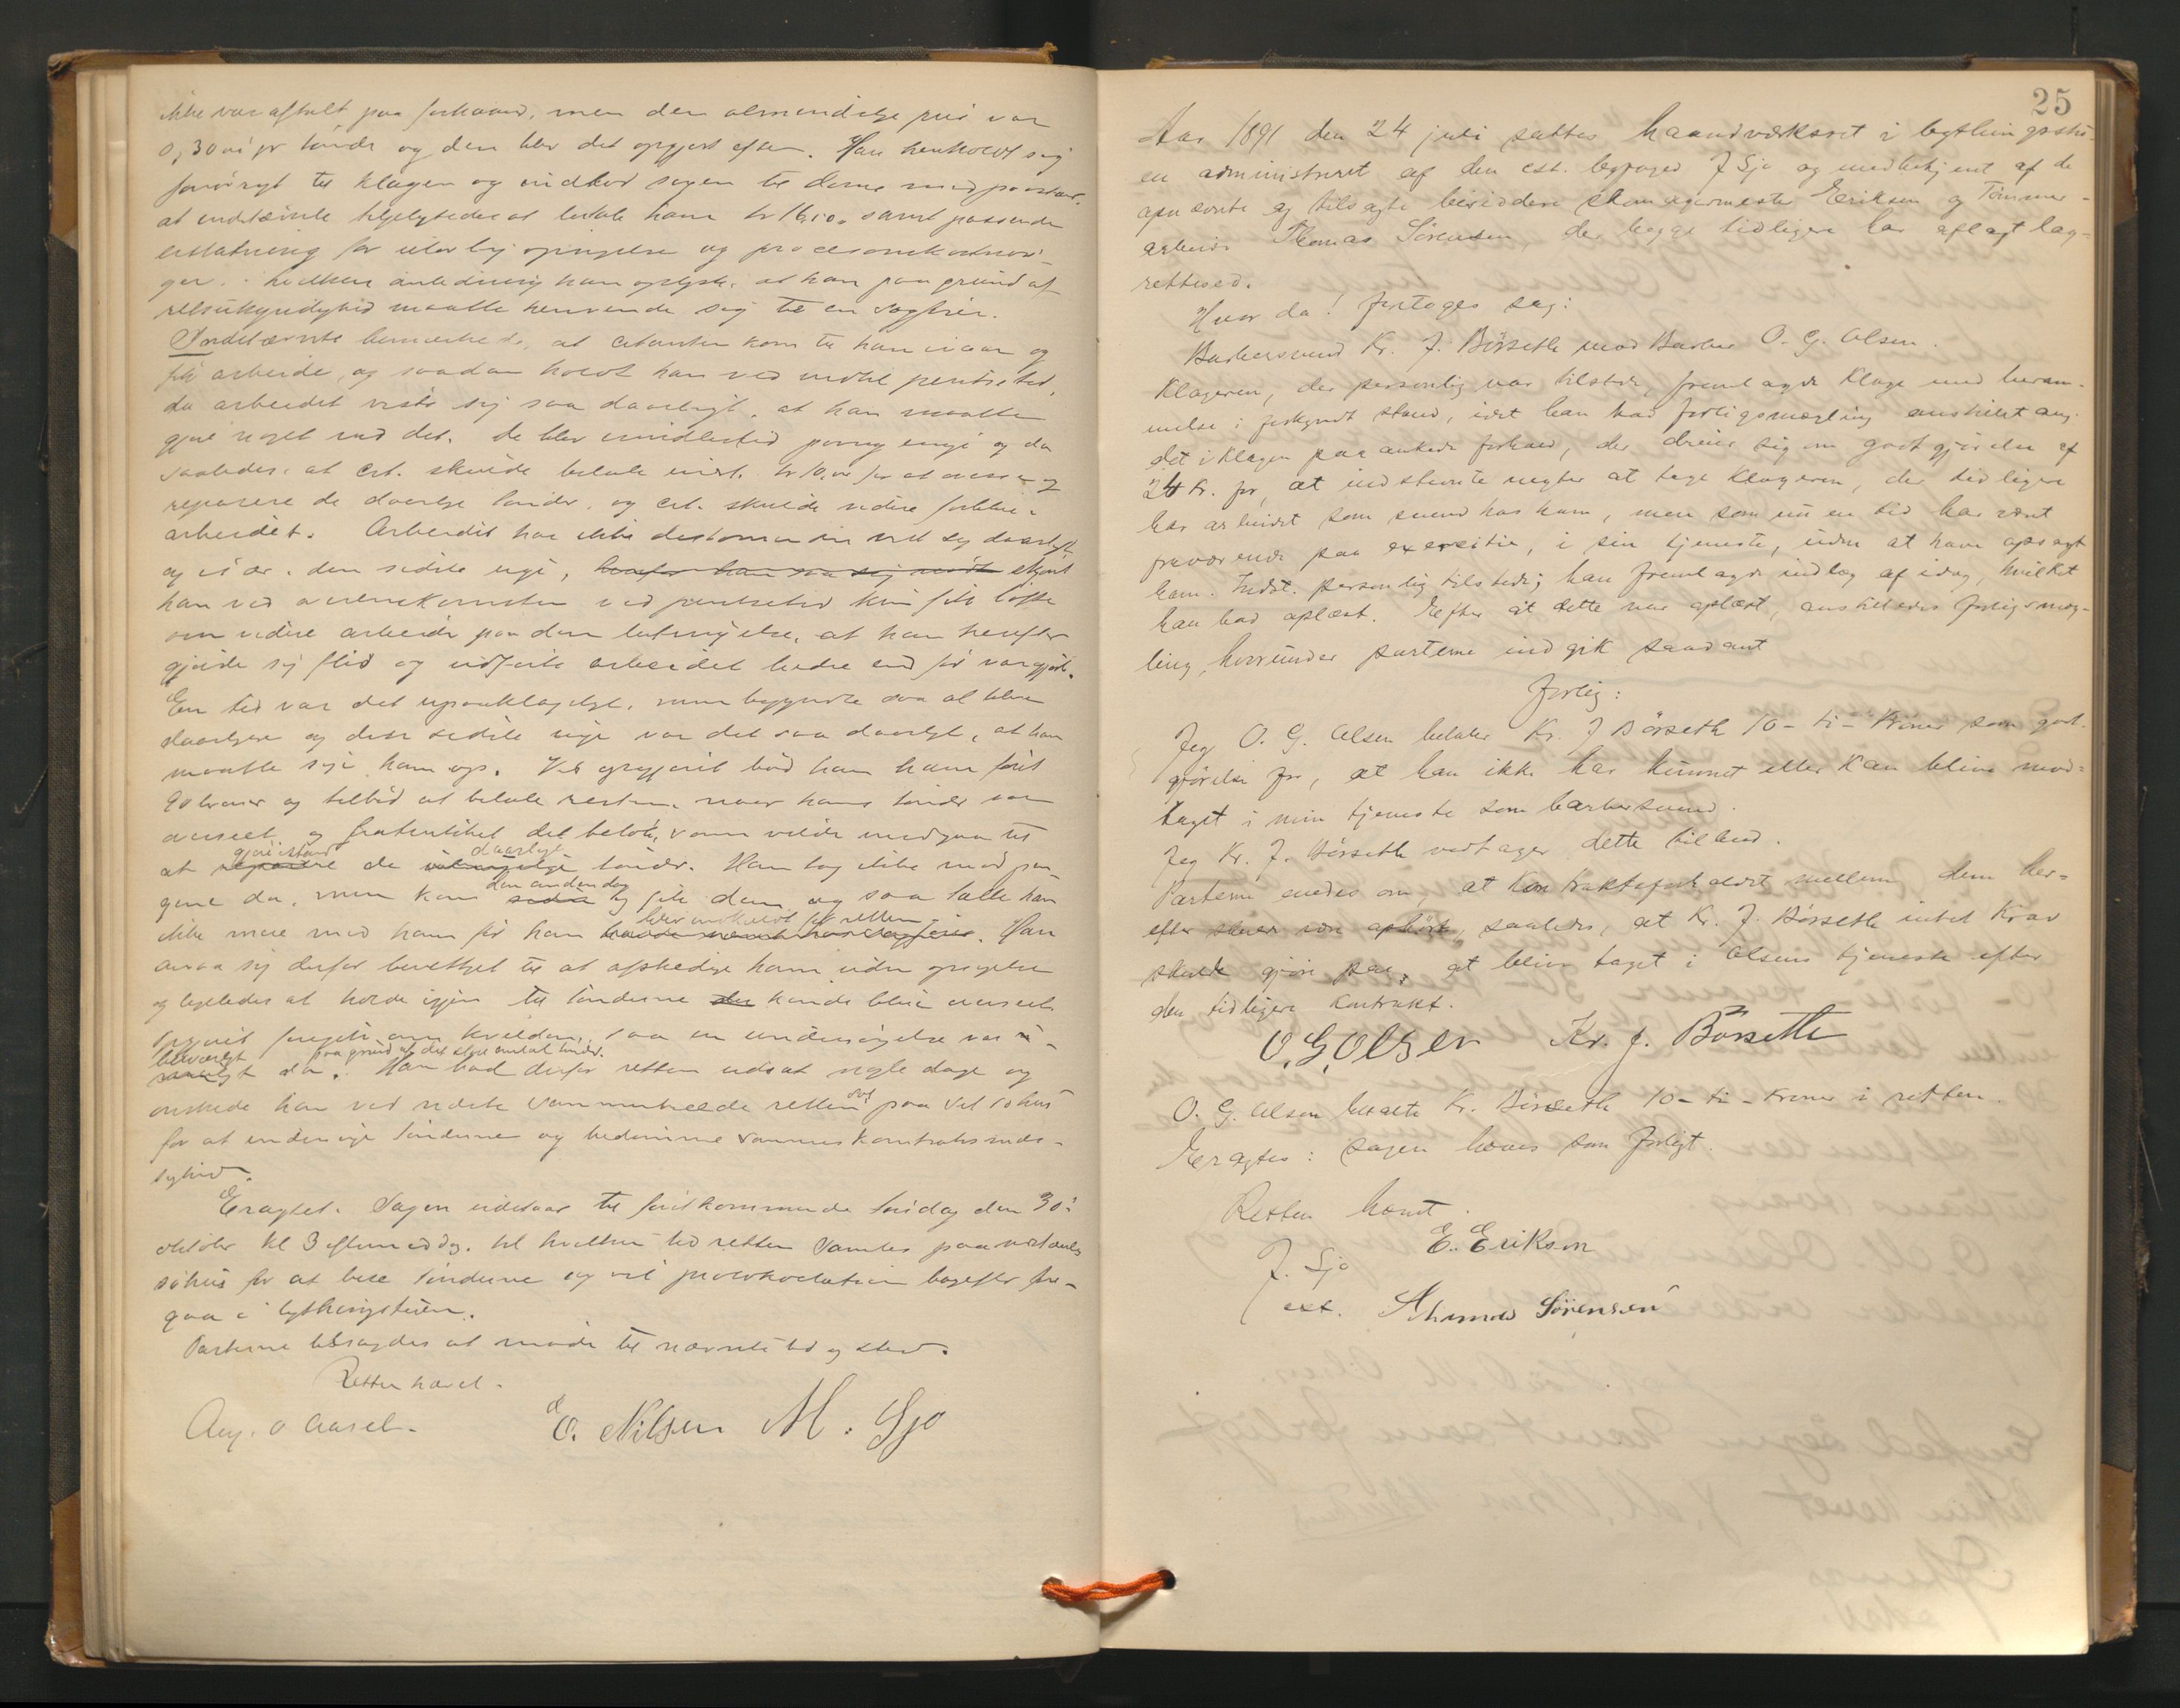 ikke var aftalt paa forhaand, men den almindelige pris var
0,30 øre pr tønde og den blev det opgjort efter. Han henholdt sig
forøvrigt til klagen og indlod sagen til doms med paastand,
at indstævnte tilpligtedes at betale ham kr 16,50 samt passende
erstatning for ulovlig opsigelse og procesomkostnin-
ger. I hvilken anledning han oplyste, at han paa grund af
retsukyndighed maatte henvende sig til en sagfører.
Indstævnte bemærkede, at citanten kom til ham ivaar og
fik arbeide, og saadan holdt han ved indtil pintsetid,
da arbeidet viste sig saa daarligt, at han maatte
gjøre noget ved det. De blev imidlertid paany enige og da
saaledes, at cit. skulde betale indst. kr 10,00 for at overse og
reparere de daarlige tønder, og cit. skulde videre forbedre
arbeidet. Arbeidet har ikke destomindre vist sig daarligt
og især den sidste uge, skjønt
han ved overenskomsten ved pintsetid kun fik løfte
om videre arbeide paa den betingelse, at han herefter
gjorde sig flid og udførte arbeidet bedre end før var gjort.
En tid var det upaaklageligt, men begyndte saa at blive
daarligere og den sidste uge var det saa daarligt, at han
maatte sige ham op. Ved opgjøret bød han ham først
20 kroner og tilbød at betale resten, naar hans tønder var
overseet og fratrukket det beløb, som vilde medgaa til
gjøre istand daarlige
at reparere de tønder. Han tog ikke mod pen-
den anden dag
gene da, men kom og fik dem og saa talte han
blev indkaldt for retten
ikke mere med ham før han. Han
ansaa sig derfor berettiget til at afskedige ham uden opsigelse
og ligeledes at holde igjen til tønderne kunde blive overseet.
Opgjøret foregik om kvelden, saa en undersøgelse var u-
paa grund af det store antal tønder.
da. Han bad derfor retten udsat nogle dage og
ønskede han ved næste sammentræde retten sat paa Vil søhus
for at undersøge tønderne og bedømme sammes kontraktsmæs-
sighed.
Eragtet. Sagen udstaar til førstkommende fredag den 30te
oktober kl 3 eftermiddag, til hvilken tid retten samles paa
søhus for at bese tønderne og vil protokolation bagefter fore-
gaa i bythingstuen.
Parterne tilsagdes at møde til nævnte tid og sted.
Retten hævet.
Aug. O Aasel. E. Nilsen M. Sjo
25
Aar 1891 den 24 juli sattes haandværksret i bythingstu-
en administreret af den cst. byfoged J Sjo og medbetjent af de
opnævnte og tilsagte beisiddere skomagermester Eriksen og Tømmer-
arbeider Thomas Sørensen, der begge tidligere har aflagt lag-
retteed.
Hvor da! foretoges sag:
Barbersvend Kr. J. Børseth mod Barber O. G. Olsen.
Klageren, der personlig var tilstede, fremlagde klage med beram-
melse i forkyndt stand, idet han bad forligsmægling anstillet ang.
det i klagen paaankede forhold, der dreier sig om godtgjørelse af
24 Kr. for, at indstevnte negter at tage Klageren, der tidligere
har arbeidet som svend hos ham, men som nu en tid har været
fraværende paa exersitie, i sin tjeneste, uden at have opsagt
ham. Indst. personlig tilstede; han fremlagde indlæg af idag, hvilket
han bad oplæst. Efter at dette var oplæst, anstilledes forligsmæg-
ling, hvorunder parterne indgik saadant
Forlig:
Jeg O. G. Olsen betaler Kr. J Børseth 10 - ti - Kroner som godt-
gjørelse for, at han ikke har kunnet eller kan blive mod-
taget i min tjeneste som barbersvend.
Jeg Kr. J. Børseth vedtager dette tilbud.
Parterne enedes om, at Kontraktsforholdet mellem dem her-
efter skuer være ophørt, saaledes, at Kr. J. Børseth intet Krav
skulde gjøre paa, at blive taget i Olsens tjeneste efter
den tidligere Kontrakt.
O. G. Olsen Kr. J. Børseth
O. G. Olsen betalte Kr. Børseth 10 - ti - Kroner i retten.
Eragtes: Sagen hæves som forligt.
Retten hævet.
J. Sjo E. Eriksen
cst. Thomas Sörensen